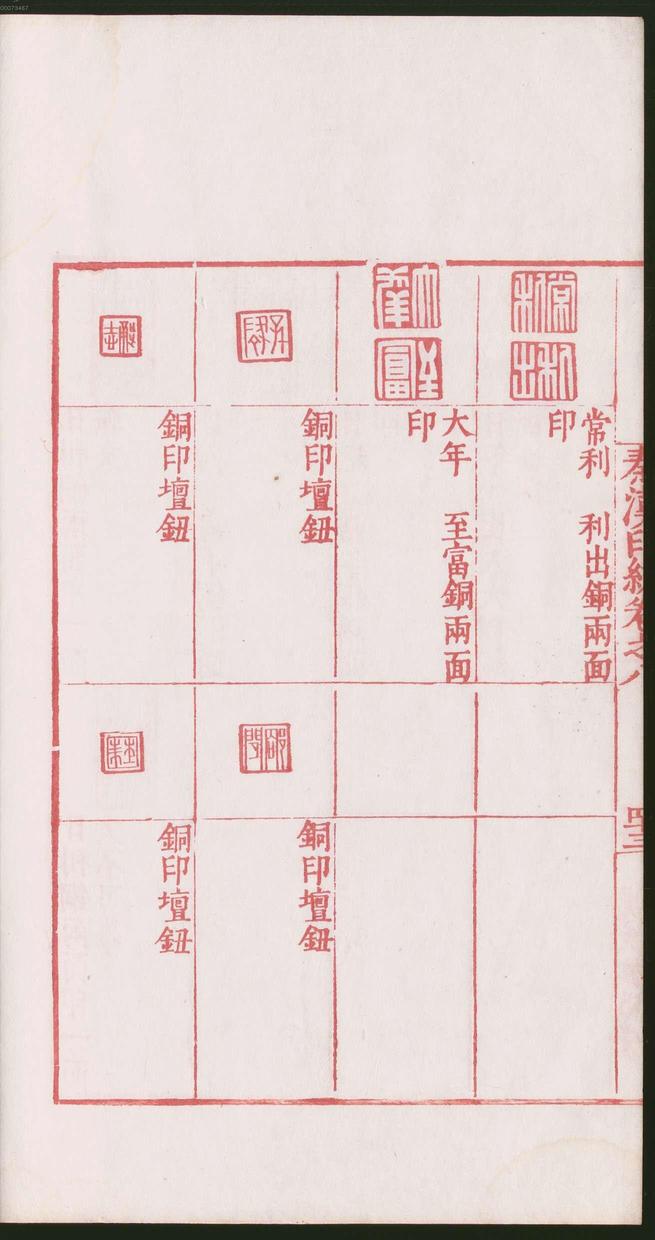 00073467
秦漢印統卷之八
四三
常利
利出
常利 利出銅兩面
印
大年
至富
大年 至富銅兩面
印
銅印壇鈕
銅印壇鈕
銅印壇鈕
銅印壇鈕